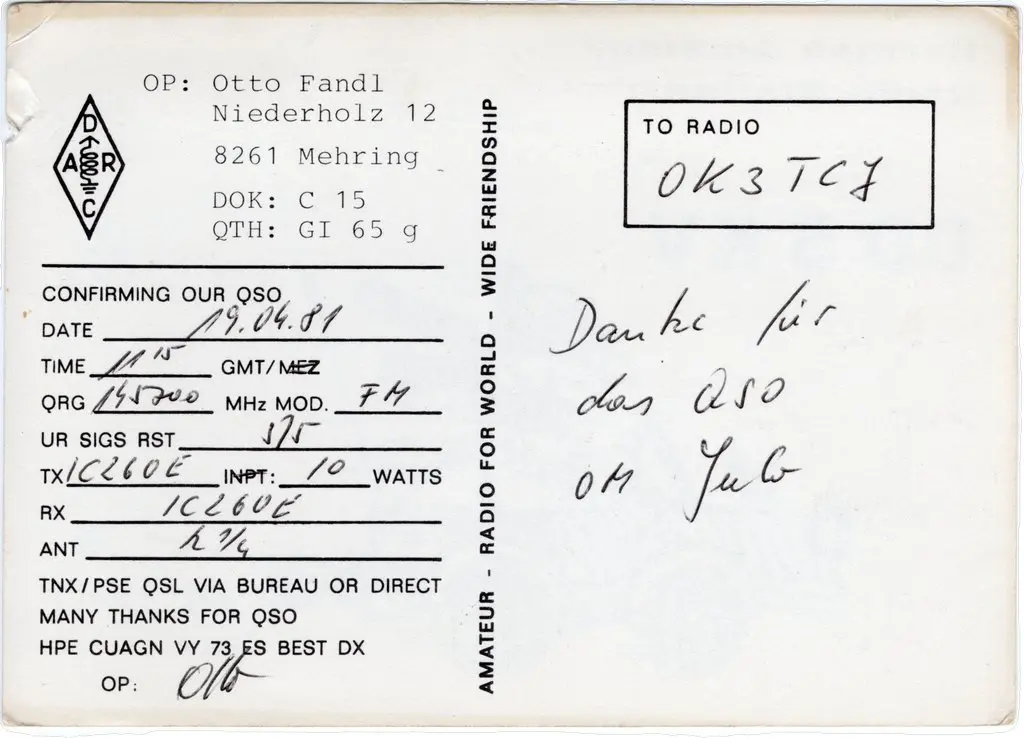 OP: Otto Fandl
Niederholz 12
8261 Mehring
DOK: C 15
QTH: GI 65 g
D
A R
C
CONFIRMING OUR QSO
DATE 19.04.81
TIME 11 15 GMT/MEZ
QRG 145700 MHz MOD. FM
UR SIGS RST 5/5
TX IC260E INPT: 10 WATTS
RX IC260E
ANT
TNX/PSE QSL VIA BUREAU OR DIRECT
MANY THANKS FOR QSO
HPE CUAGN VY 73 ES BEST DX
OP: Otto
AMATEUR - RADIO FOR WORLD - WIDE FRIENDSHIP
TO RADIO
OK3TCJ
Danke für
das QSO
OM